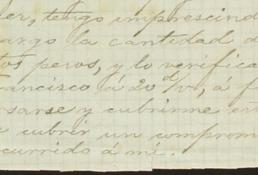 er, tengo imprescind
argo la cantidad d
tos pesos, y lo verifica
rancisco á 20 d/v, á f
sarse y cubrirme est
e cubrir un comprom
ocurrido á mi.